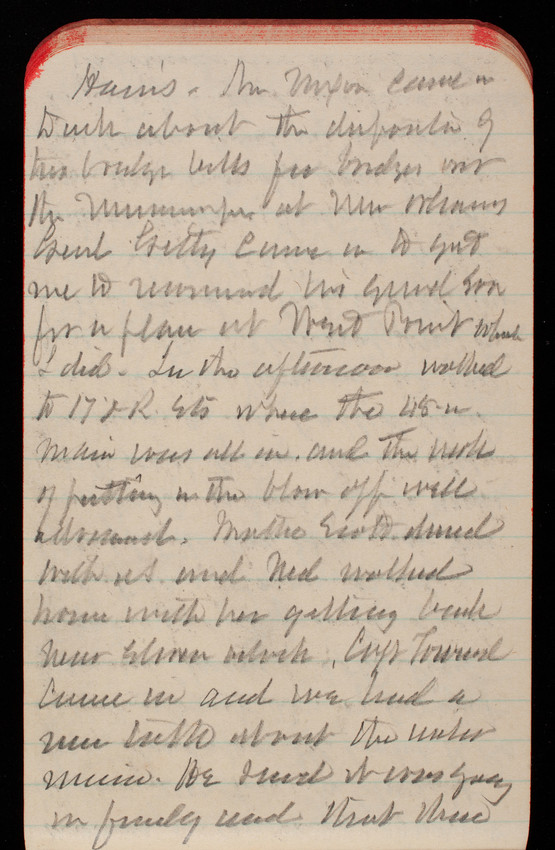 Harris. Mr Nixon came in
Dusk about the disposition of
two bridge bills for bridges over
the Mississippi at New Orleans
Genl Getty came in to get
me to recommend his grand son
for a place at West Point which
I did. In the afternoon walked
to 17 & R Sts where the 48 in
main was all in. and the work
of putting in the blow off well
advanced. Mother Scott dined
with us and Ned walked
home with her getting back
near eleven oclock. Capt
came in and we had a
nice talk about the water
main. He said it was going
in finely and that three